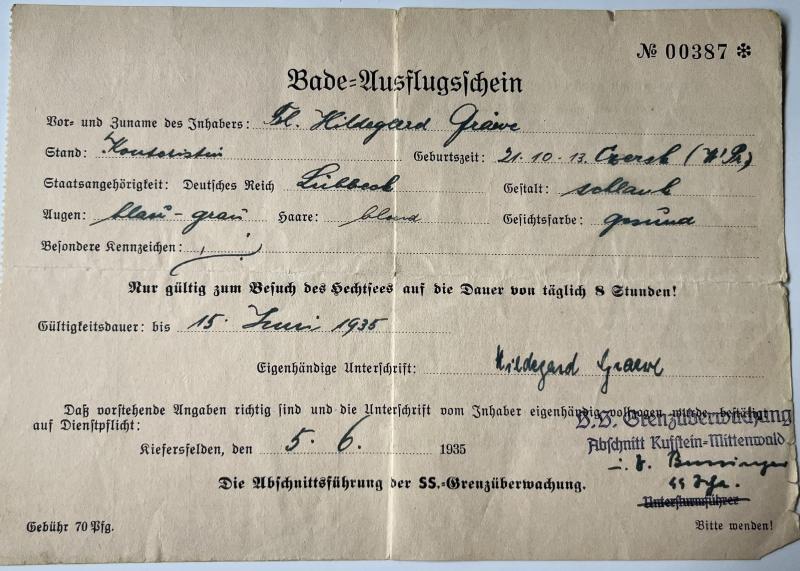 № 00387 ✻
Bade=Ausflugsschein
Vor= und Zuname des Inhabers: Frl. Hildegard Graeve
Stand: Kontoristin Geburtszeit: 21.10.13. Czersk (W'Pr.)
Staatsangehörigkeit: Deutsches Reich Lübbeck Gestalt: schlank
Augen: blau-grau Haare: blond Gesichtsfarbe: gesund
Besondere Kennzeichen:
Nur gültig zum Besuch des Hechtsees auf die Dauer von täglich 8 Stunden!
Gültigkeitsdauer: bis 15. Juni 1935
Eigenhändige Unterschrift: Hildegard Graeve
Daß vorstehende Angaben richtig sind und die Unterschrift vom Inhaber eigenhändig vollzogen wurde, bestätigt
auf Dienstpflicht:
S.S. Grenzüberwachung
Abschnitt Kufstein-Mittenwald
Kiefersfelden, den 5. 6. 1935
SS
Die Abschnittsführung der SS.=Grenzüberwachung.
Untersturmführer
Gebühr 70 Pfg. Bitte wenden!